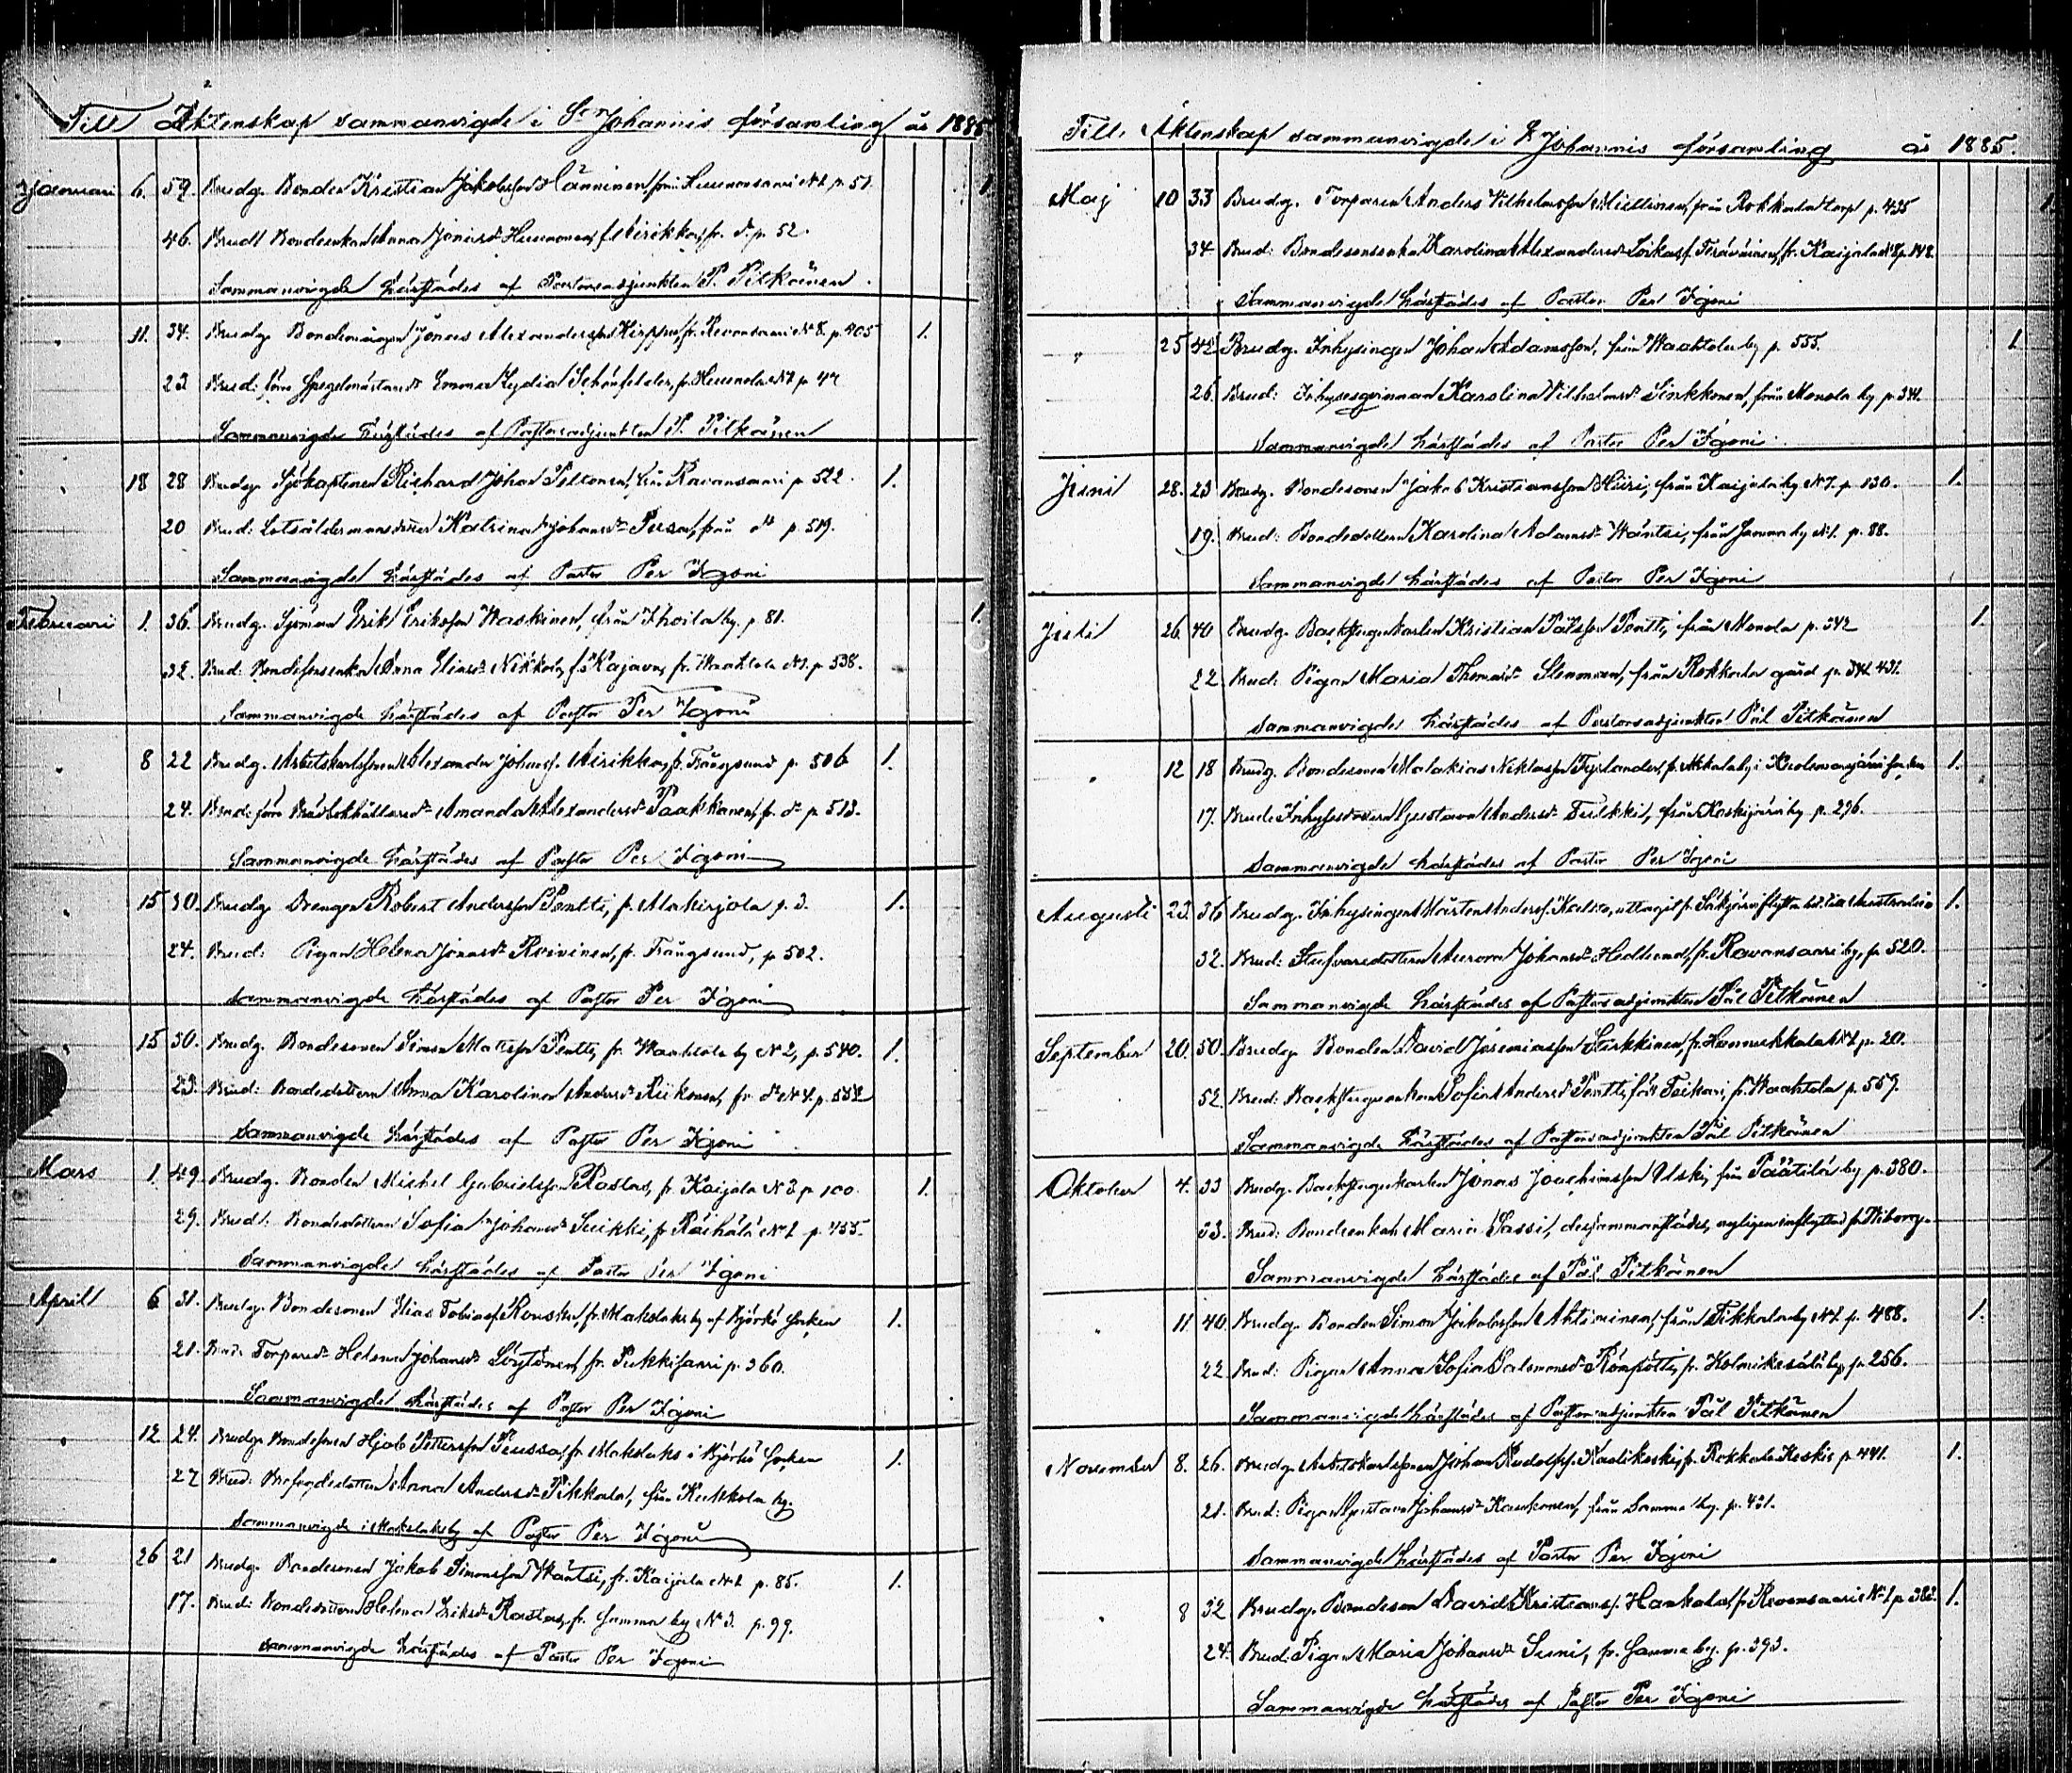 Till Äktenskap sammanvigde i St Johannis församling år 1885
Januari 6. 59. Brudg. Bonden Kristian Jakobsson Hänninen, från Huunonsaari No 2 p. 51. 1
46. Brud: Bondeenkan Anna Jonasdr Huunonen, f. Airikka, fr. do p. 52.
Sammanvigde härstädes af Pastorsadjunkten P. Pitkänen
" 11. 34. Brudg. Bondemågen Jonas Alexandersson Kirppu, fr. Revonsaari No 8. p. 405 1.
23 Brud: Emma Lydia Schönfelder, fr. p. 47
Sammanvigde härstädes af Pastorsadjunkten P. Pitkänen
" 18 28 Brudg. Sjökaptenen Richard Johan Peltonen, från Ravansaari p. 522. 1.
20 Brud: Lotsåldermansdotter Katrina Johansdr Puusa, från do p. 519.
Sammanvigde härstädes af Pastor Per Igoni
Februari 1. 36. Brudg. Sjöman Erik Eriksson Waskinen, från Ihoila by. p. 81. 1.
32. Brud: Bondesonsenkan Anna Eliasdr Nikkola, f. Kajava, fr. Waahtola No 1. p. 538.
Sammanvigde härstädes af Pastor Per Igoni
" 8 22 Brudg. Arbetskarlssonen Alexander Johanss. Airikka, fr. Trångsund p. 506 1.
24. Brud: Amanda Alexandersdr Paakkanen, fr. do p. 513.
Sammanvigde härstädes af Pastor Per Igoni
" 15 30. Brudg. Drengen Robert Andersson Pentti, fr. Makirjola p. 3. 1.
24. Brud: Pigan Helena Jonasdr Roivinen, fr. Trångsund, p. 502.
Sammanvigde härstädes af Pastor Per Igoni
15 30. Brudg. Bondesonen Simon Matsson Pentti, fr. Waahtola by No 2, p. 540. 1.
23. Brud: Bondedottern Anna Karolina Andersdr Riikonen, fr. do No 4. p. 552
Sammanvigde härstädes af Pastor Per Igoni
Mars 1. 49. Brudg. Bonden Michel Gabrielsson Rastas, fr. Kaijala No 3. p. 100. 1.
29. Brud: Bondedottern Sofia Johansdr Suikki, fr. Räihälä No 2 p. 455.
Sammanvigde härstädes af Pastor Per Igoni
April 6 31. Brudg. Bondesonen Elias Tobiass. Rousku, fr. Makslaks by af Björkö socken 1.
21. Brud: Torparedr Helena Johansdr Löytönen, fr. Pukkisaari p. 360.
Sammanvigde härstädes af Pastor Per Igoni
12 24. Brudg. Bondesonen Hjob Pettersson Peussa, fr. Makslaks i Björkö Socken 1.
27 Brud: Anna Andersdr Pikkala, från Kukkola by.
Sammanvigde i Makslaks by af Pastor Per Igoni
" 26 21 Brudg. Bondesonen Jakob Simonsson Wäntsi, fr. Kaijala No 2 p. 85. 1.
17. Brud: Bondedottern Helena Eriksdr Rastas, fr. Samma by No 3. p. 99.
Sammanvigde härstädes af Pastor Per Igoni
Till Äktenskap sammanvigde i St Johannis församling år 1885.
Maj 10 33 Brudg. Torparen Anders Vilhelmsson Miettinen, från Rokkala torp p. 435 1.
34 Brud: Bondesonsenkan Karolina Alexandersdr Loikas, f. Teräväinen, fr. Kaijala No 8 p. 148.
Sammanvigde härstädes af Pastor Per Igoni
" 25 42 Brudg. Inhysingen Johan Adamsson, från Waahtola by p. 555. 1.
26. Brud: Inhysesqvinnan Karolina Vilhelmsdr Sinkkonen, från Monola by p. 341
Sammanvigde härstädes af Pastor Per Igoni
Juni 28. 23 Brudg. Bondesonen Jakob Kristiansson Hiiri, från Kaijala by No 7. p. 130. 1.
19. Brud: Bondedottern Karolina Adamsdr Wäntsi, från Samma by No 1. p. 88.
Sammanvigde härstädes af Pastor Per Igoni
Juli 26 40 Brudg. Backstugukarlen Kristian Pålsson Pentti, från Monola p. 342 1.
22 Brud: Pigan Maria Thomasdr Stenman, från Rokkala gård p. 431.
Sammanvigde härstädes af Pastorsadjunkten Pål Pitkänen
" 12 18 Brudg. Bondesonen Malakias Niklasson Fyrlander, fr. by i Kuolemajärvi socken 1.
17. Brud: Inhysesdottern Gustava Andersdr Tulkki, från Koskijärvi by p. 236.
Sammanvigde härstädes af Pastor Per Igoni
Augusti 23. 36 Brudg. Inhysingen Mårten Anderss. 1.
32. Brud: Stufvaredottern Aurora Johansdr Hedlund, fr. Ravansaari by, p. 520.
Sammanvigde härstädes af Pastorsadjunkten Pål Pitkänen
September 20. 50. Brudg. Bonden David Jeremiasson Sirkkinen, fr. Hannukkala No 2 p. 20.
52. Brud: Backstuguenkan Sofia Andersdr Pentti, född Teikari, fr. Waahtola p. 559.
Sammanvigde härstädes af Pastorsadjunkten Pål Pitkänen
Oktober 4. 33 Brudg. Backstugukarlen Jonas Joachimsson Ulski, från Päätilä by p. 380.
33. Brud: Bondeenkan Maria Sassi, desammastädes, nyligen inflyttad fr. Wiborg.
Sammanvigde härstädes af Pål Pitkänen
" 11 40. Brudg. Bonden Simon Jakobsson Ahtiainen, från Tikkala by No 2 p. 488. 1.
22 Brud: Pigan Anna Sofia Salomonsdr Römpötti, fr. Kolmikesälä by, p. 256.
Sammanvigde härstädes af Pastorsadjunkten Pål Pitkänen
November 8. 26. Brudg. Arbetskarlssonen Johan Rudolfss. Kaolikoski, fr. Rokkala Koskis p. 441. 1.
21. Brud: Pigan Gustava Johansdr Kaukonen, från Samma by. p. 421.
Sammanvigde härstädes af Pastor Per Igoni
" 8 32 Brudg. Bondeson David Kristianss. Hankala, fr. Revonsaari No 1 p. 382. 1.
24. Brud: Pigan Maria Johansdr Suni, fr. Samma by. p. 393.
Sammanvigde härstädes af Pastor Per Igoni